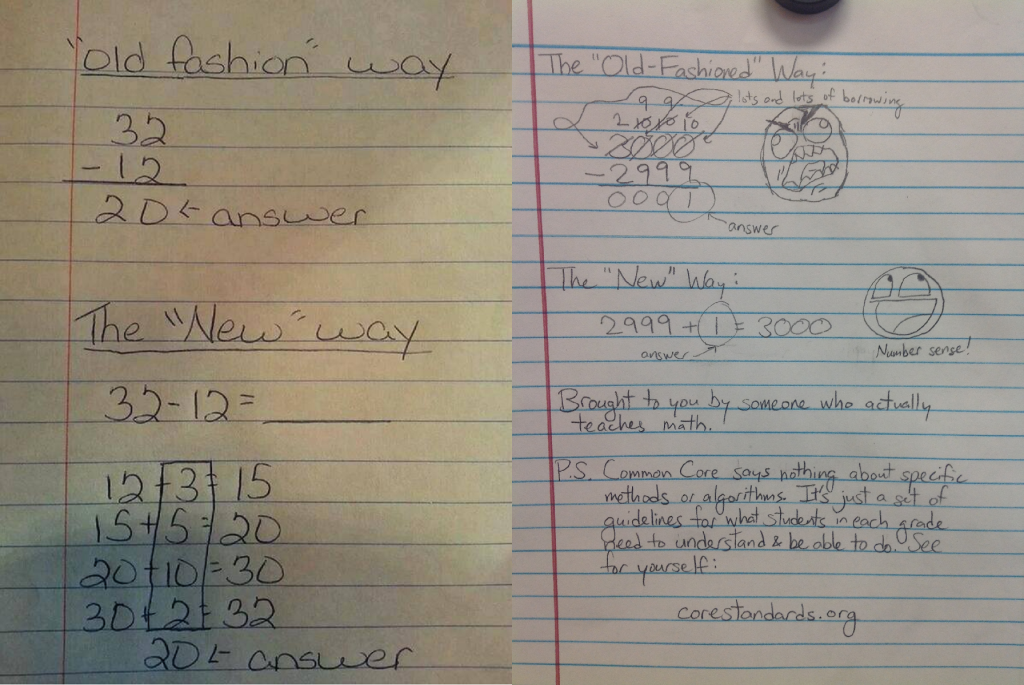 "Old fashion" way
32
- 12
20 ← answer
The "New" way
32 - 12 = ______
12 + 3 = 15
15 + 5 = 20
20 + 10 = 30
30 + 2 = 32
20 ← answer
The "Old-Fashioned" Way:
lots and lots of borrowing
9 9
2 10 10 10
3000
- 2999
0001
answer
The "New" Way:
2999 + 1 = 3000
answer
Number sense!
Brought to you by someone who actually
teaches math.
P.S. Common Core says nothing about specific
methods or algorithms. It's just a set of
guidelines for what students in each grade
need to understand & be able to do. See
for yourself:
corestandards.org